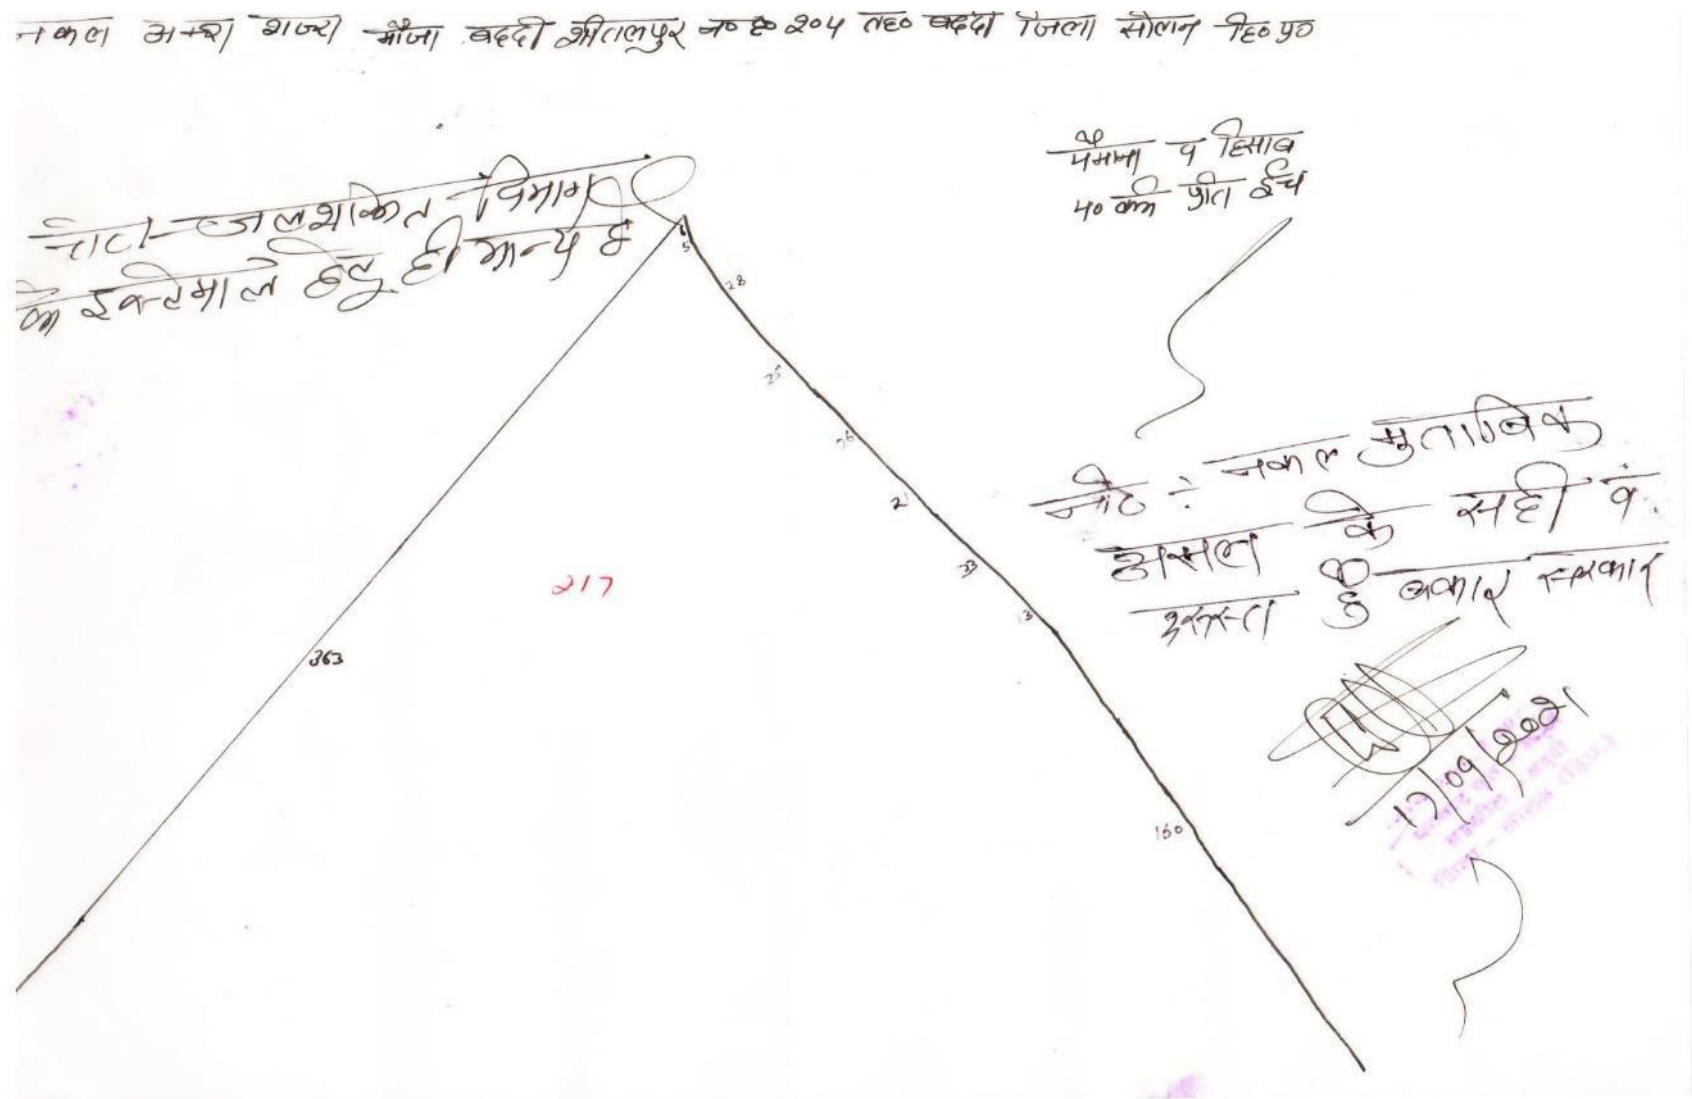 नकल अक्श शजरा मौजा बद्दी शीतलपुर ह0 न0 २०५ तह0 बद्दी जिला सोलन हि0 प्र0
पैमाना व हिसाब
४० कर्म प्रति ईंच
नोट - जलशक्ति विभाग
के इस्तेमाल हेतु ही मान्य है
5
28
25
26
21
33
13
160
363
217
नोट :- नकल मुताबिक
असल के सही व
दुरुस्त है बकार सरकार
17/09/2021